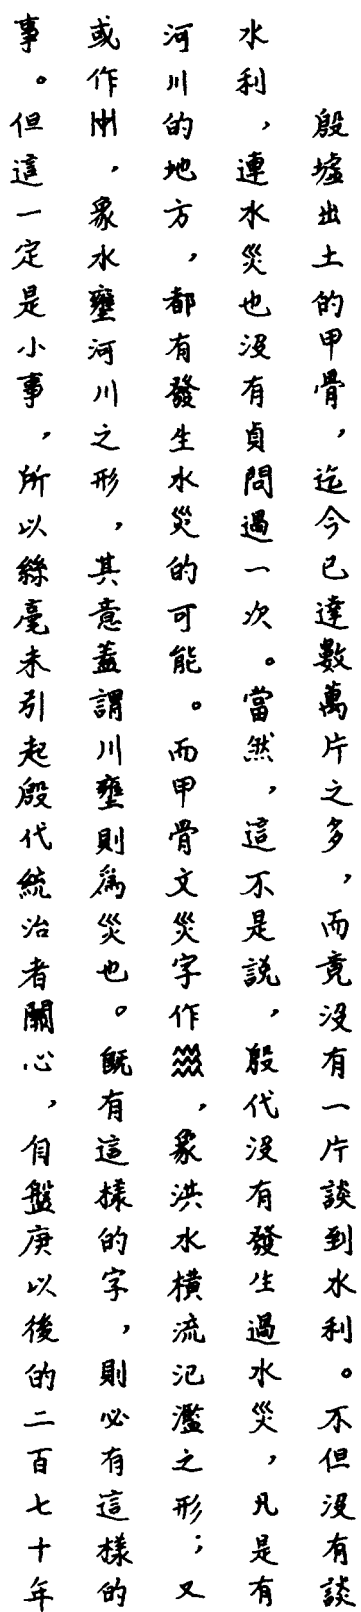 殷墟出土的甲骨，迄今已達數萬片之多，而竟没有一片談到水利。不但没有談
水利，連水災也没有貞問過一次。當然，這不是説，殷代没有發生過水災，凡是有
河川的地方，都有發生水災的可能。而甲骨文災字作，象洪水橫流氾濫之形；又
或作，象水壅河川之形，其意蓋謂川壅則為災也。旣有這樣的字，則必有這樣的
事。但這一定是小事，所以絲毫未引起殷代統治者關心，自盤庚以後的二百七十年